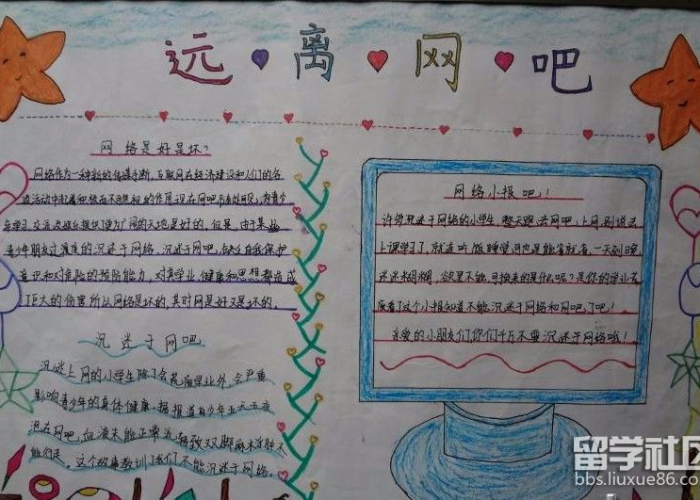 远离网吧
网络是好是坏?
网络作为一种新的传媒手断,互联网在经济建设和人们的各
青少年朋友过渡度的沉迷于网络,沉迷于网吧,缺乏自我保护
意识和对危险的预防能力,对其学业、健康和思想都造成
了巨大的伤害所以网络是坏的,其时网是好又是坏的。
沉迷于网吧
沉迷上网的小学生除了会荒废学业外,会严重
影响青少年的身体健康。据报道有少年五天五夜
泡在网吧,血液未能正常流
能行走。这个故事教训了我们不能沉迷于网络。
网络小报吧!
许多沉迷于网络的小学生,整天跑去网吧,上网,别说去
上课学习了,就连吃饭睡觉可也是能省就省,一天到晚
迷迷糊糊,欲罢不能,可换来的是什么呢?是你的学业
看了这个小报知道不能沉迷于网络和网吧了吧!
亲爱的小朋友们你们千万不要沉迷于网络哦!
留学社区
bbs.liuxue86.com